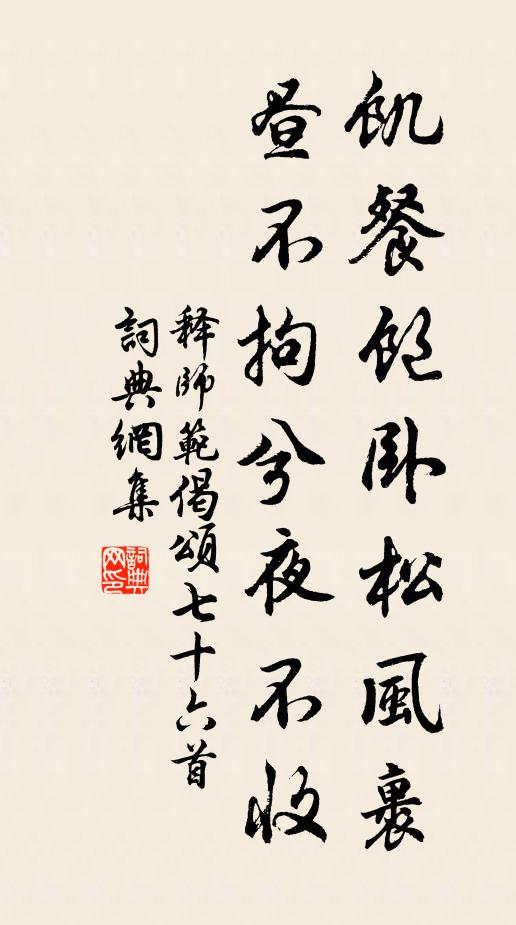 飢餐飽卧松風裏
晝不拘兮夜不收
释師範偈頌七十六首
詞典網集
詞典网印